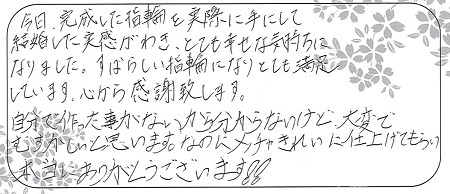 今日、完成した指輪を実際に手にして
結婚した実感がわき、とても幸せな気持ちに
なりました。すばらしい指輪になりとても満足
しています。心から感謝致します。
自分で作った事がないから分からないけど、大変で
むずかしいと思います。なのにメッチャきれいに仕上げてもらい
本当にありがとうございます!!